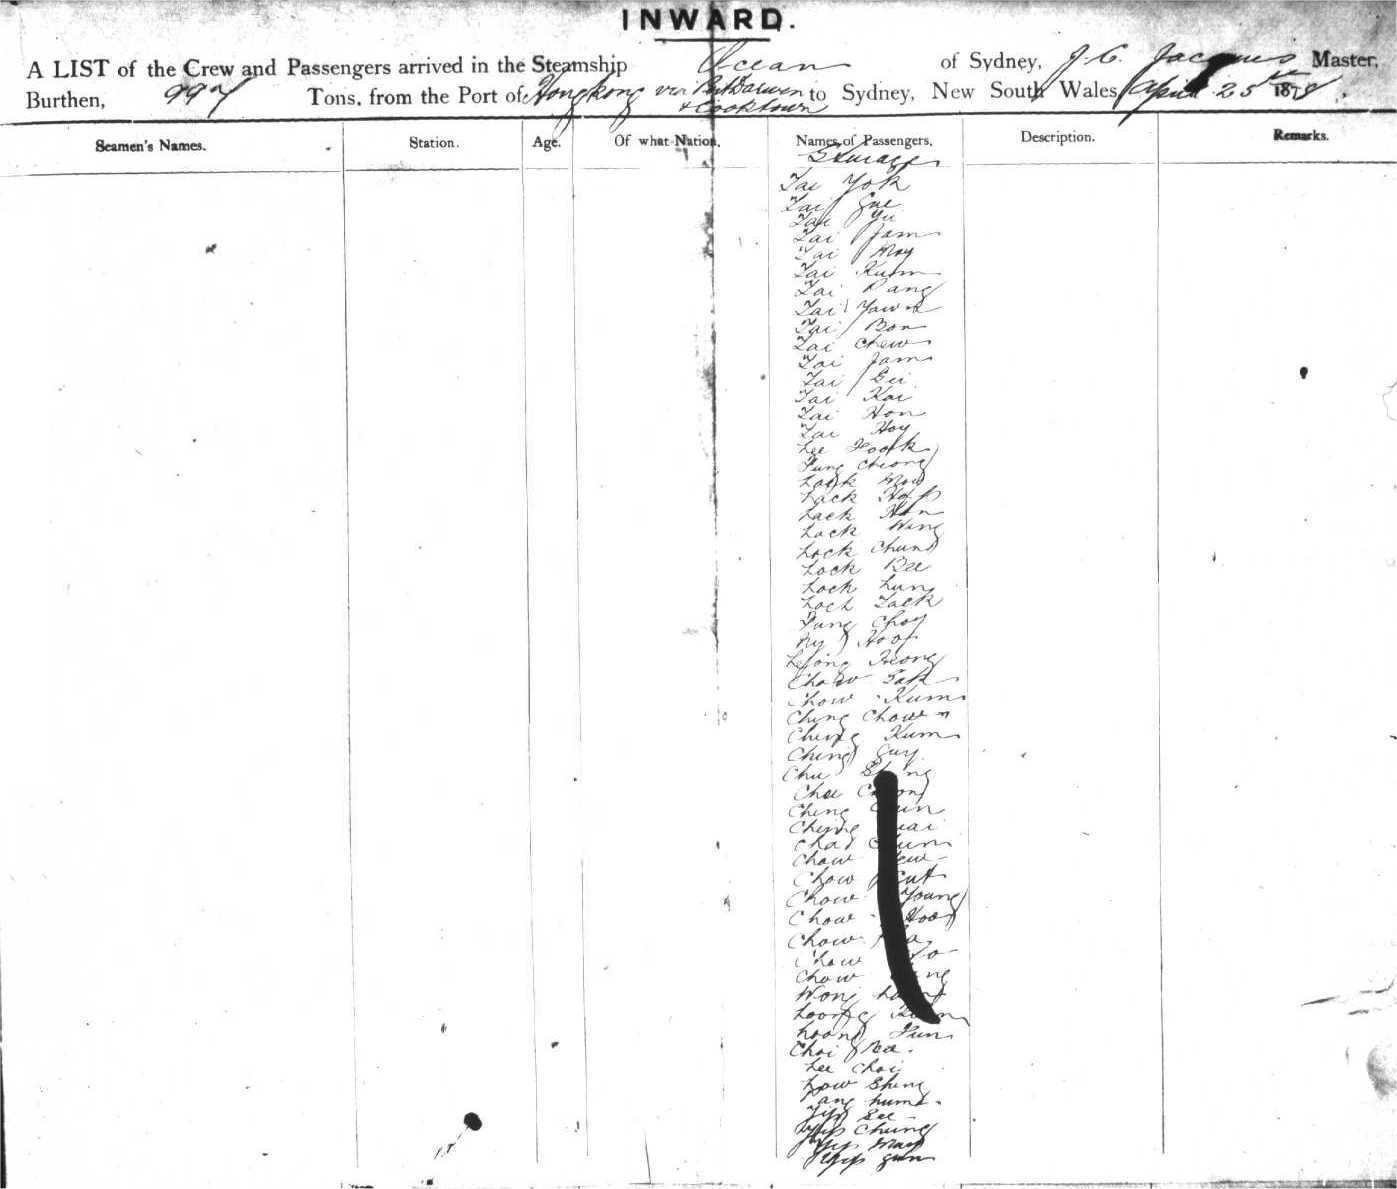 INWARD.
A LIST of the Crew and Passengers arrived in the Steamship Ocean of Sydney, J. C. Jacques Master,
Burthen, 997 Tons, from the Port of Hongkong via Port Darwin & Cooktown to Sydney, New South Wales, April 25th 1878.
Seamen's Names. Station. Age. Of what Nation. Names of Passengers. Description. Remarks.
Steerage
Tai Yok
Tai Gue
Tai Yu
Tai Jam
Tai Moy
Tai Kum
Tai Pang
Tai Yawn
Tai Bon
Tai Chew
Tai Jam
Tai Gei
Tai Kai
Tai Hon
Tai Hoy
Lee Hook
Fung Cheong
Lack Mow
Lack Hop
Lack Han
Lack Wing
Lock Chung
Lock Bee
Lock Lung
Lock Tack
Fung Choy
Ny Hoo
Leong
Chow Sak
Chow Kum
Ching Chow
Ching Kum
Ching Guy
Chu
Chee
Ching
Ching
Chow
Chow
Chow Young
Chow Hoo
Chow
Chow
Chow
Wong
Loong
Loong Fun
Choi
Lee Choi
Low Shing
Pang
Yip See
Yip Chung
Yip May
Yip Gun